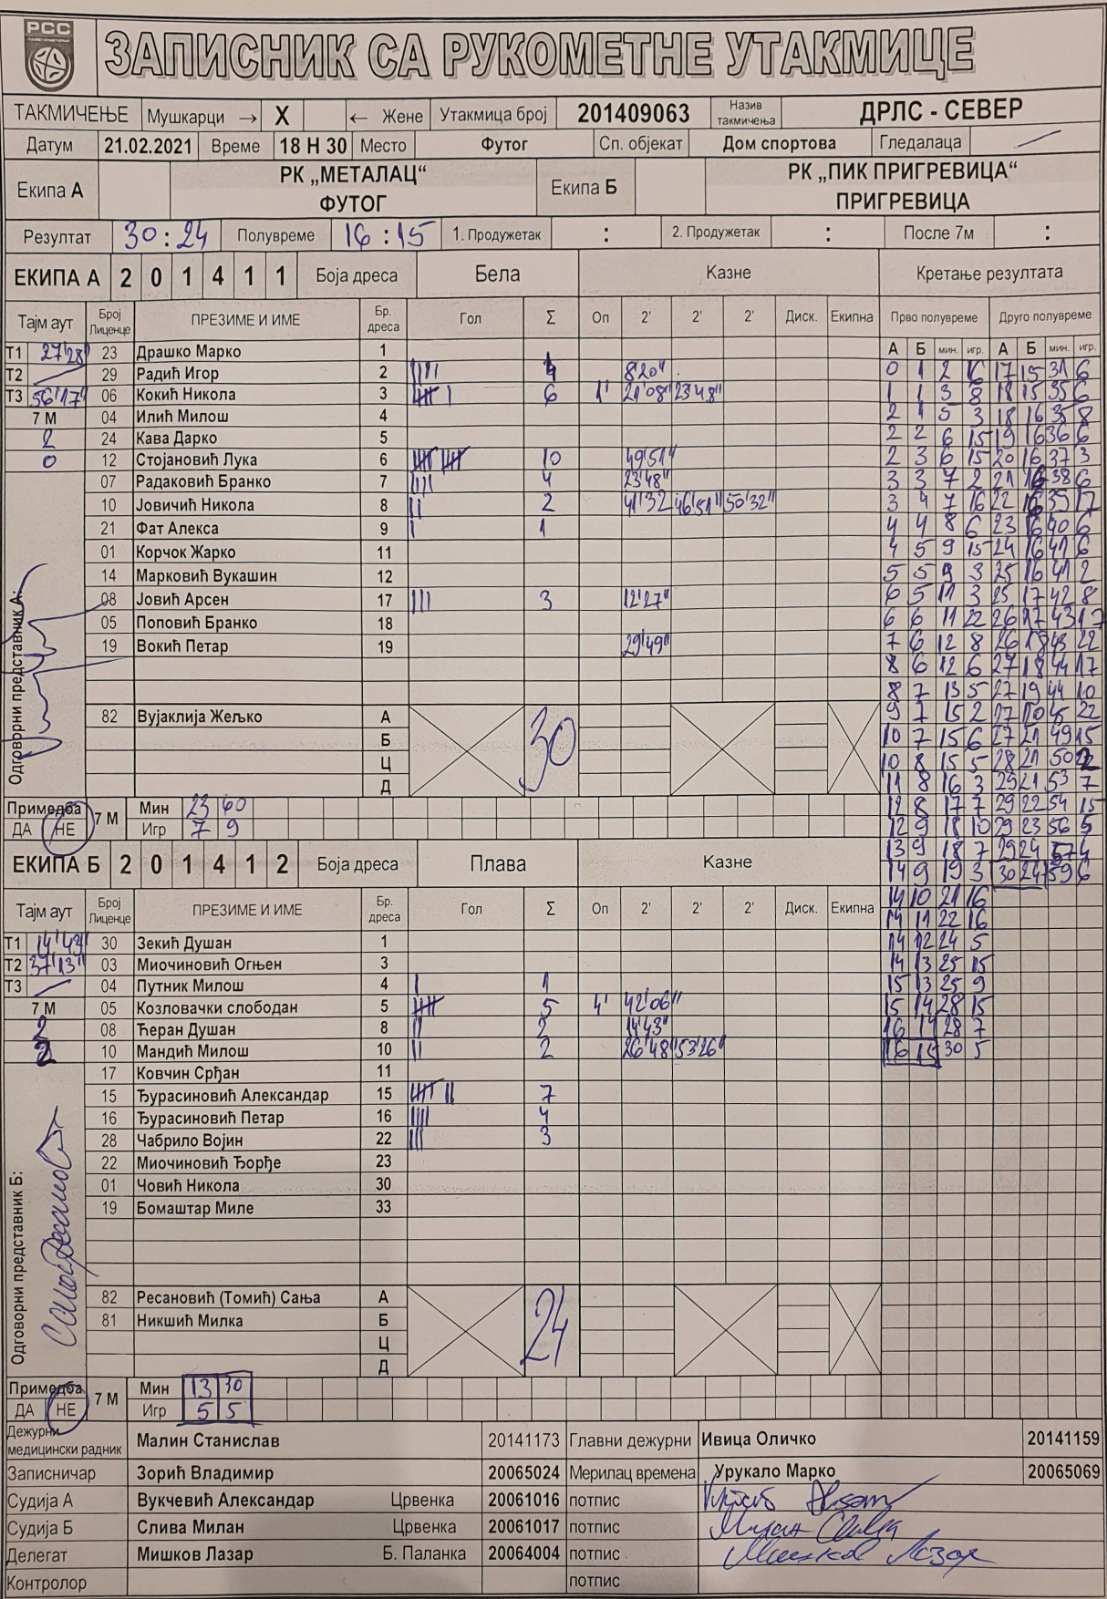 РСС
ЗАПИСНИК СА РУКОМЕТНЕ УТАКМИЦЕ
ТАКМИЧЕЊЕ Мушкарци → X ← Жене Утакмица број 201409063 Назив такмичења ДРЛС - СЕВЕР
Датум 21.02.2021 Време 18 Н 30 Место Футог Сп. објекат Дом спортова Гледалаца
Екипа А РК „МЕТАЛАЦ“ ФУТОГ Екипа Б РК „ПИК ПРИГРЕВИЦА“ ПРИГРЕВИЦА
Резултат 30 : 24 Полувреме 16 : 15 1. Продужетак : 2. Продужетак : После 7м :
ЕКИПА А 2 0 1 4 1 1 Боја дреса Бела Казне Кретање резултата
Тајм аут Број Лиценце ПРЕЗИМЕ И ИМЕ Бр. дреса Гол Σ Оп 2' 2' 2' Диск. Екипна Прво полувреме Друго полувреме
А Б мин. игр. А Б мин. игр.
Т1 27'28 23 Драшко Марко 1
Т2 29 Радић Игор 2 4 8'20"
Т3 56'17" 06 Кокић Никола 3 6 1' 21'08" 23'48"
7 М 04 Илић Милош 4
2 24 Кава Дарко 5
0 12 Стојановић Лука 6 10 49'51"
07 Радаковић Бранко 7 4 23'48"
10 Јовичић Никола 8 2 41'32 46'51" 50'32"
21 Фат Алекса 9 1
01 Корчок Жарко 11
14 Марковић Вукашин 12
08 Јовић Арсен 17 3 12'27"
05 Поповић Бранко 18
19 Вокић Петар 19 29'49"
82 Вујаклија Жељко А
Б
Ц
Д
30
Одговорни представник А:
Примедба ДА НЕ 7 М Мин 23 40
Игр 7 9
0 1 2 16 17 15 31 6
1 1 3 8 18 15 35 6
2 1 5 3 18 16 35 8
2 2 6 15 19 16 36 6
2 3 6 15 20 16 37 3
3 3 7 2 21 16 38 6
3 4 7 16 22 16 39 17
4 4 8 6 23 16 40 6
4 5 9 15 24 16 41 6
5 5 9 3 25 16 41 2
6 5 11 3 25 17 42 8
6 6 11 22 26 17 43 17
7 6 12 8 26 18 43 22
8 6 12 6 27 18 44 17
8 7 13 5 27 19 44 10
9 7 15 2 27 22
10 7 15 6 27 21 49 15
10 8 15 5 28 21 50 2
11 8 16 3 29 21 53 7
12 8 17 7 29 22 54 15
12 9 18 10 29 23 56 5
13 9 18 7 29 24 57 4
14 9 19 3 30 24 59 6
14 10 21 16
14 11 22 16
14 12 24 5
14 13 25 15
15 13 25 9
15 14 28 15
16 14 28 7
16 15 30 5
ЕКИПА Б 2 0 1 4 1 2 Боја дреса Плава Казне
Тајм аут Број Лиценце ПРЕЗИМЕ И ИМЕ Бр. дреса Гол Σ Оп 2' 2' 2' Диск. Екипна
Т1 14'43" 30 Зекић Душан 1
Т2 37'13" 03 Миочиновић Огњен 3
Т3 04 Путник Милош 4 1
7 М 05 Козловачки слободан 5 5 4' 42'06"
2 08 Ћеран Душан 8 2 14'43"
2 10 Мандић Милош 10 2 26'48" 53'26"
17 Ковчин Срђан 11
15 Ђурасиновић Александар 15 7
16 Ђурасиновић Петар 16 4
28 Чабрило Војин 22 3
22 Миочиновић Ђорђе 23
01 Човић Никола 30
19 Бомаштар Миле 33
82 Ресановић (Томић) Сања А
81 Никшић Милка Б
Ц
Д
24
Одговорни представник Б:
Примедба ДА НЕ 7 М Мин 13 30
Игр 5 5
Дежурни медицински радник Малин Станислав 20141173 Главни дежурни Ивица Оличко 20141159
Записничар Зорић Владимир 20065024 Мерилац времена Урукало Марко 20065069
Судија А Вукчевић Александар Црвенка 20061016 потпис
Судија Б Слива Милан Црвенка 20061017 потпис
Делегат Мишков Лазар Б. Паланка 20064004 потпис Мишков Лазар
Контролор потпис